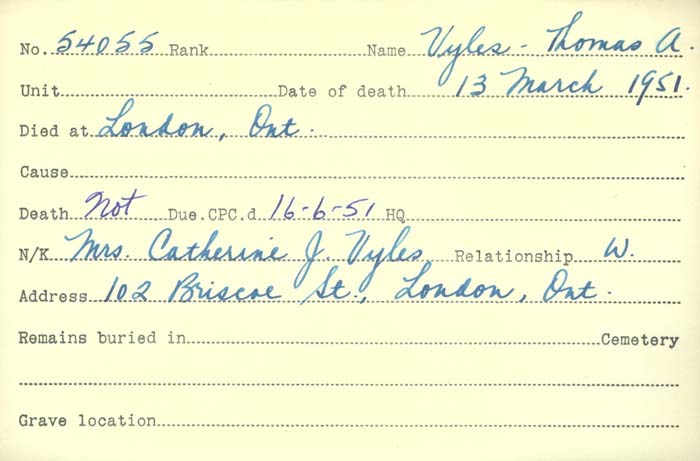 No. 54055 Rank Name Vyles - Thomas A.
Unit Date of death 13 March 1951.
Died at London, Ont.
Cause
Death Not Due. CPC.d 16-6-51 HQ
N/K Mrs. Catherine J. Vyles Relationship W.
Address 102 Briscoe St., London, Ont.
Remains buried in Cemetery
Grave location